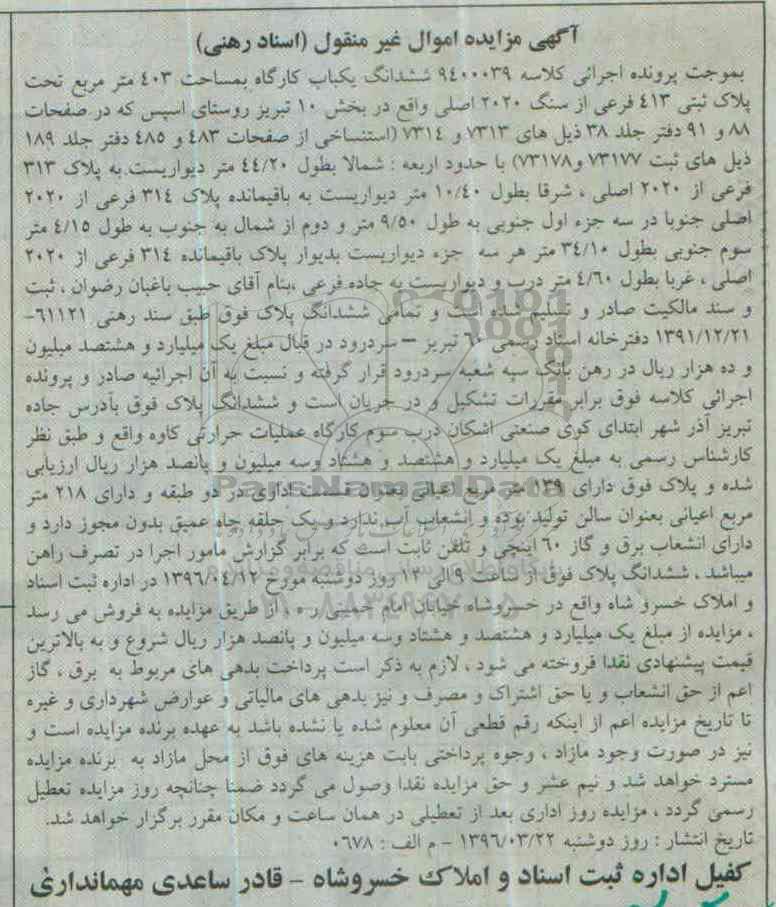 آگهی مزایده اموال غیر منقول (اسناد رهنی)
بموجت پرونده اجرائی کلاسه ۹٤۰۰۰۳۹ ششدانگ یکباب کارگاه بمساحت ٤۰۳ متر مربع تحت
پلاک ثبتی ٤۱۳ فرعی از سنگ ۲۰۲۰ اصلی واقع در بخش ۱۰ تبریز روستای اسپس که در صفحات
۸۸ و ۹۱ دفتر جلد ۳۸ ذیل های ۷۳۱۳ و ۷۳۱٤ (استنساخی از صفحات ٤۸۳ و ٤۸۵ دفتر جلد ۱۸۹
ذیل های ثبت ۷۳۱۷۷ و۷۳۱۷۸) با حدود اربعه : شمالا بطول ٤٤/۲۰ متر دیواریست به پلاک ۳۱۳
فرعی از ۲۰۲۰ اصلی ، شرقا بطول ۱۰/٤۰ متر دیواریست به باقیمانده پلاک ۳۱٤ فرعی از ۲۰۲۰
اصلی جنوبا در سه جزء اول جنوبی به طول ۹/۵۰ متر و دوم از شمال به جنوب به طول ٤/۱۵ متر
سوم جنوبی بطول ۳٤/۱۰ متر هر سه جزء دیواریست بدیوار پلاک باقیمانده ۳۱٤ فرعی از ۲۰۲۰
اصلی ، غربا بطول ٤/٦۰ متر درب و دیواریست به جاده فرعی ،بنام آقای حبیب باغبان رضوان ، ثبت
و سند مالکیت صادر و تسلیم شده است و تمامی ششدانگ پلاک فوق طبق سند رهنی ٦۱۱۲۱-
۱۳۹۱/۱۲/۲۱ دفترخانه اسناد رسمی ٦۰ تبریز – سردرود در قبال مبلغ یک میلیارد و هشتصد میلیون
و ده هزار ریال در رهن بانک سپه شعبه سردرود قرار گرفته و نسبت به آن اجرائیه صادر و پرونده
اجرائی کلاسه فوق برابر مقررات تشکیل و در جریان است و ششدانگ پلاک فوق بآدرس جاده
تبریز آذر شهر ابتدای کوی صنعتی اشکان درب سوم کارگاه عملیات حرارتی کاوه واقع و طبق نظر
کارشناس رسمی به مبلغ یک میلیارد و هشتصد و هشتاد وسه میلیون و پانصد هزار ریال ارزیابی
شده و پلاک فوق دارای ۱۳۹ متر مربع اعیانی بعنوان قسمت اداری در دو طبقه و دارای ۲۱۸ متر
مربع اعیانی بعنوان سالن تولید بوده و انشعاب آب ندارد و یک حلقه چاه عمیق بدون مجوز دارد و
دارای انشعاب برق و گاز ٦۰ اینچی و تلفن ثابت است که برابر گزارش مامور اجرا در تصرف راهن
میباشد ، ششدانگ پلاک فوق از ساعت ۹ الی ۱۲ روز دوشنبه مورخ ۱۳۹٦/۰٤/۱۲ در اداره ثبت اسناد
و املاک خسرو شاه واقع در خسروشاه خیابان امام خمینی ره ، از طریق مزایده به فروش می رسد
، مزایده از مبلغ یک میلیارد و هشتصد و هشتاد وسه میلیون و پانصد هزار ریال شروع و به بالاترین
قیمت پیشنهادی نقدا فروخته می شود ، لازم به ذکر است پرداخت بدهی های مربوط به برق ، گاز
اعم از حق انشعاب و یا حق اشتراک و مصرف و نیز بدهی های مالیاتی و عوارض شهرداری و غیره
تا تاریخ مزایده اعم از اینکه رقم قطعی آن معلوم شده یا نشده باشد به عهده برنده مزایده است و
نیز در صورت وجود مازاد ، وجوه پرداختی بابت هزینه های فوق از محل مازاد به برنده مزایده
مسترد خواهد شد و نیم عشر و حق مزایده نقدا وصول می گردد ضمنا چنانچه روز مزایده تعطیل
رسمی گردد ، مزایده روز اداری بعد از تعطیلی در همان ساعت و مکان مقرر برگزار خواهد شد.
تاریخ انتشار : روز دوشنبه ۱۳۹٦/۰۳/۲۲ - م الف : ۰٦۷۸
کفیل اداره ثبت اسناد و املاک خسروشاه - قادر ساعدی مهمانداری
ParsNamadData